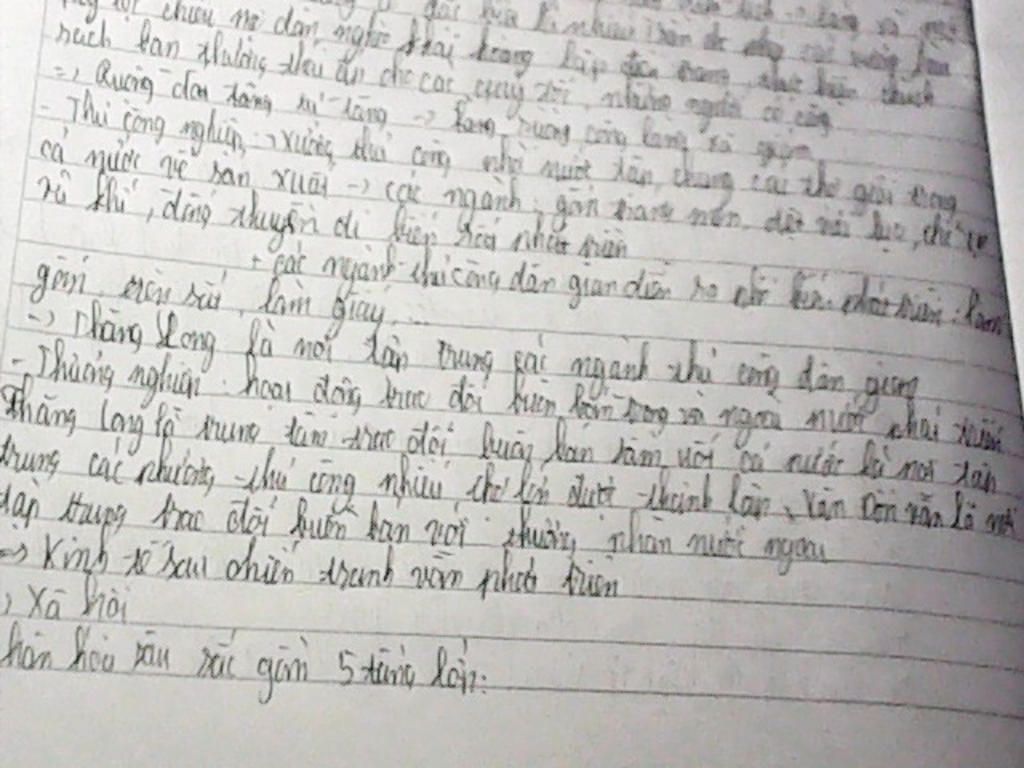 chiêu nô dân, nghèo khai hoang lập điền trang, thực hiện chính
sách ban thưởng thái ấp cho các quý tộc, những người có công
=> Ruộng đất tăng tư tăng -> Song ruộng công làng xã
- Thủ công nghiệp: xưởng thủ công nhà nước tập chung các thợ giỏi trong
cả nước về sản xuất -> các ngành: gốm tráng men, dệt vải lụa, chế tạo
vũ khí, đóng thuyền đi biển rất phát triển
+ các ngành thủ công dân gian diễn ra phát triển: làm
gốm, rèn sắt, làm giấy, ...
-> Thăng Long là nơi tập trung các ngành thủ công dân gian
- Thương nghiệp: hoạt động trao đổi buôn bán trong và ngoài nước phát triển
Thăng Long là trung tâm trao đổi buôn bán sầm với cả nước là nơi tập
trung các phường thủ công nhiều chợ lớn được thành lập, Vân Đồn vẫn là nơi
tập trung trao đổi buôn bán với thương nhân nước ngoài
=> Kinh tế sau chiến tranh vẫn phát triển
, Xã hội
hân hóa sâu sắc gồm 5 tầng lớp: